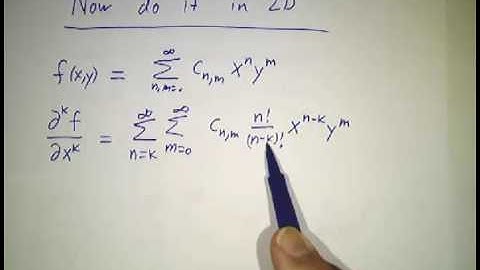 Now do it in 2D
f(x,y) = \sum_{n,m=0}^{\infty} C_{n,m} x^n y^m
\frac{\partial^k f}{\partial x^k} = \sum_{n=k}^{\infty} \sum_{m=0}^{\infty} C_{n,m} \frac{n!}{(n-k)!} x^{n-k} y^m